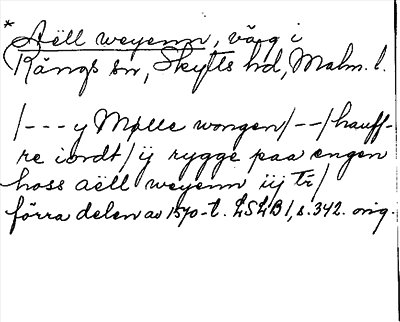 * Aëll weyenn, väg i
Rängs sn, Skytts hd, Malm. l.
/---y Mølle wongen/--/hauff-
re iordt/ij rygge paa engen
hoss aëll weyenn iij tr/
förra delen av 1570-t. LSLB 1, s. 342. orig.